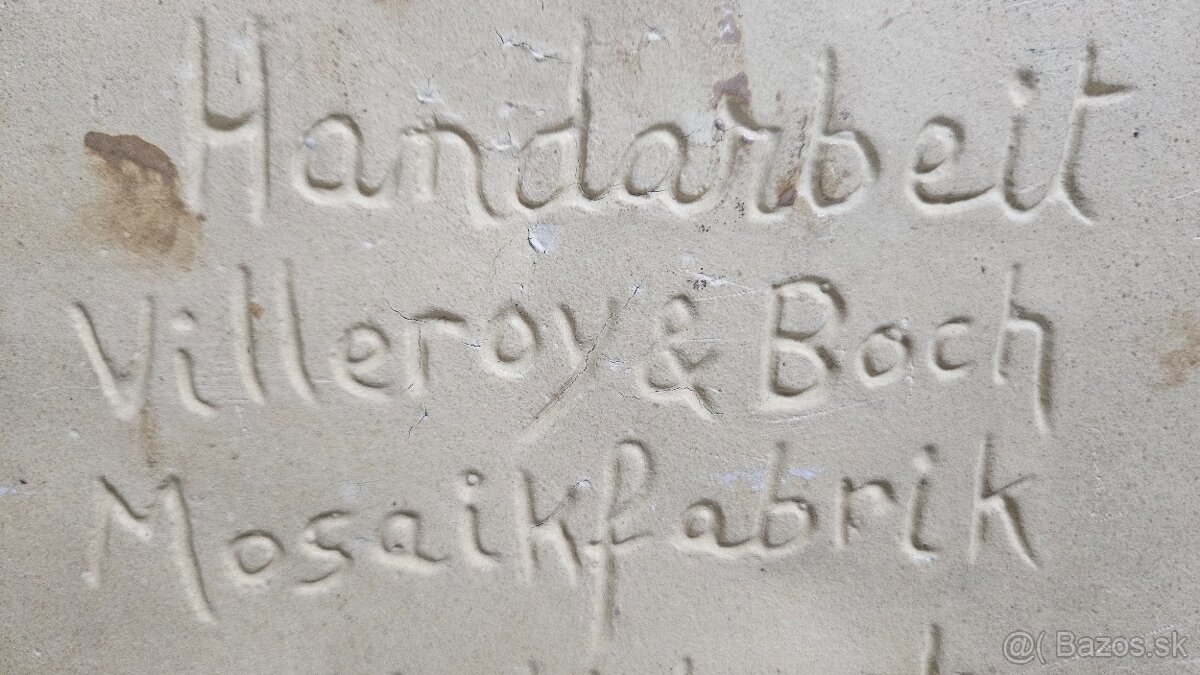 Handarbeit
Villeroy & Boch
Mosaikfabrik
@( Bazos.sk